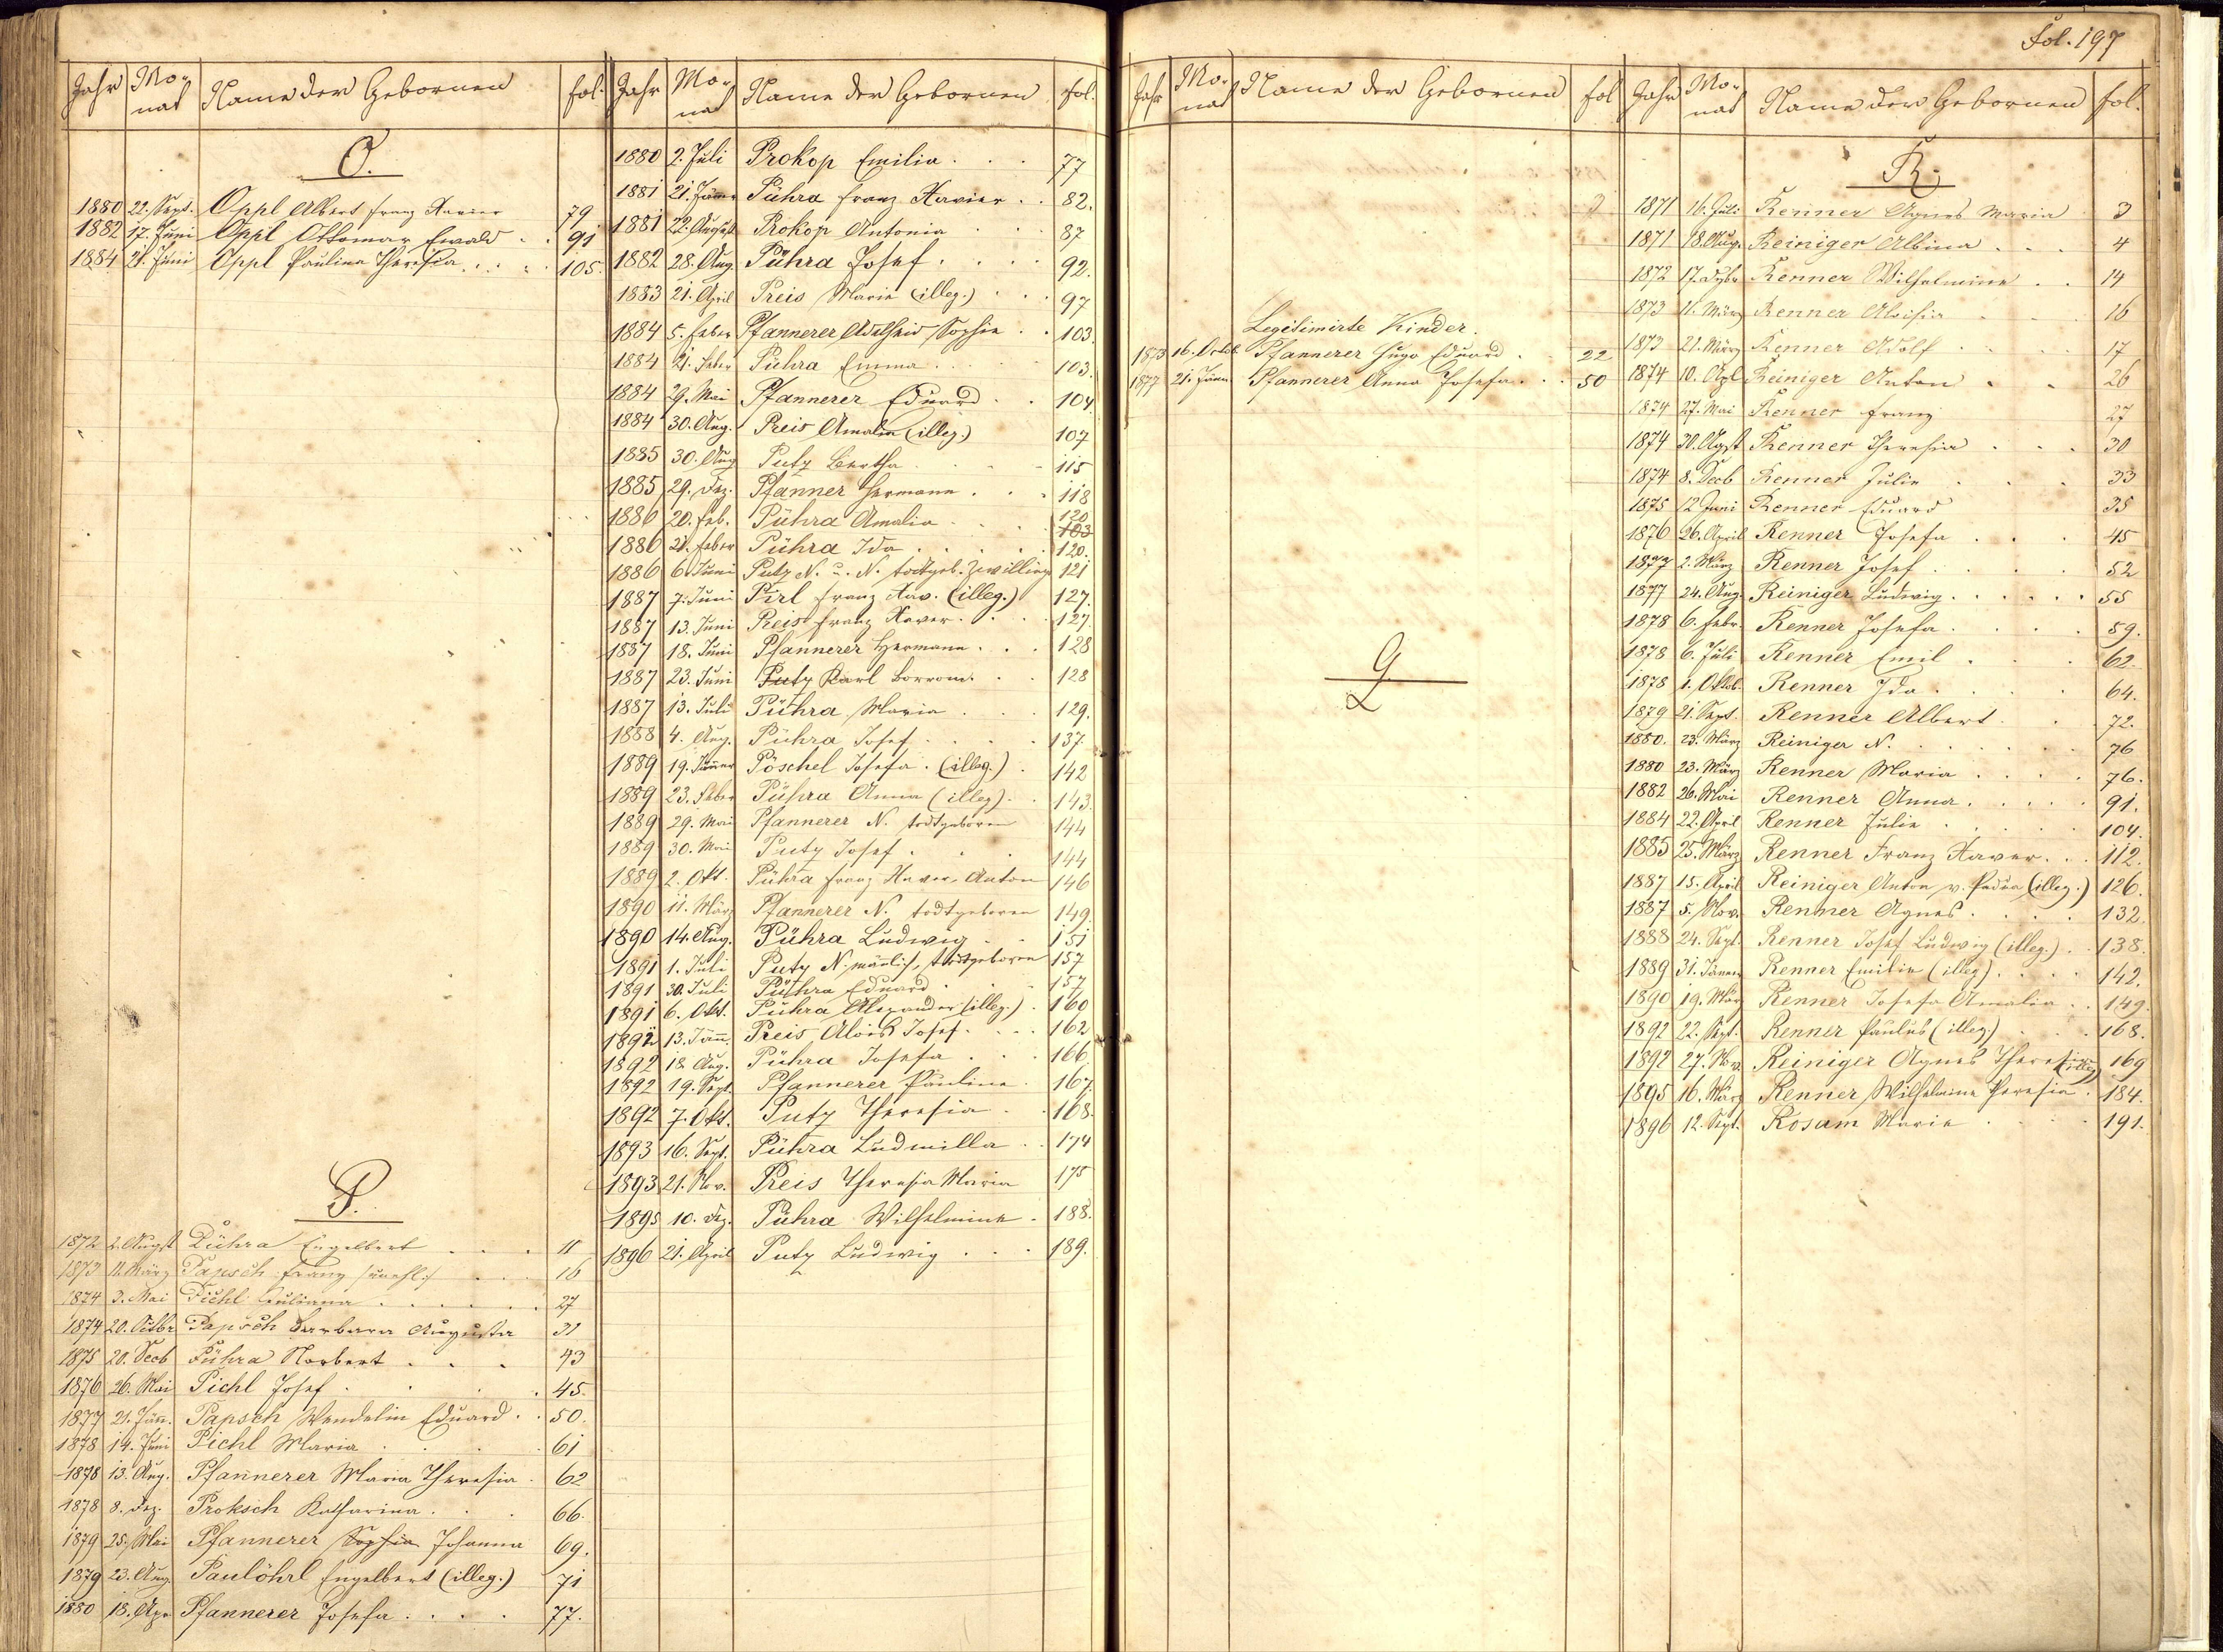 Fol. 197
Jahr Mo- nat Name der Gebornen fol.
O.
1880 22. Sept. Oppl Albert Franz Xavier 79
1882 17. Juni Oppl Ottomar Ewald . . 91
1884 21. Juni Oppl Paulina Theresia . . . . 105.
P.
1872 2. Augst Pührа Engelbert . . . 11
1873 11. März Papsch Franz /unehl:/ . . . 16
1874 3. Mai Pichl Juliana . . . . . . 27
1874 20. Octbr Papsch Barbara Augusta 31
1875 20. Decb Pühra Norbert . . . 43
1876 26. Mai Pichl Josef . . . . 45.
1877 21. Jän. Papsch Wendelin Eduard . . 50.
1878 14. Juni Pichl Maria . . . . 61
1878 13. Aug. Pfannerer Maria Theresia . 62
1878 8. Dez. Proksch Katharina . . . 66.
1879 25. Mai Pfannerer Sophia Johanna 69.
1879 23. Aug. Paulöhrl Engelbert (illeg.) 71
1880 18. Apr Pfannerer Josefa . . . . 77.
Jahr Mo- nat Name der Gebornen fol.
1880 2. Juli Prokop Emilia . . . 77
1881 21. Jänner Pühra Franz Xavier . . 82.
1881 22. August Prokop Antonia . . . 87
1882 28. Aug. Pühra Josef . . . . 92.
1883 21. April Preis Marie (illeg.) . . . 97
1884 5. Feber Pfannerer Adelheid Sophie . . 103.
1884 21. Feber Pühra Emma . . . 103.
1884 29. Mai Pfannerer Eduard . . 104.
1884 30. Aug. Preis Amalia (illeg.) 107
1885 30. Aug Putz Bertha . . . . 115
1885 29. Dez. Pfanner Hermann . . . 118
1886 20. Feb. Pühra Amalia . . . . 120
103
1886 21. Feber Pühra Ida . . . . . 120.
1886 6. Juni Putz N. u. N. todtgeb. Zwillinge 121
1887 7. Juni Pirl Franz Xav. (illeg.) 127.
1887 13. Juni Preis Franz Xaver . . . 127.
1887 18. Juni Pfannerer Hermann . . . 128
1887 23. Juni Putz Karl Borrom. . . 128
1887 13. Juli Pühra Maria . . . 129.
1888 4. Aug. Pühra Josef . . . . 137.
1889 19. Jänner Pöschel Josefa . (illeg.) . 142
1889 23. Feber Pühra Anna (illeg) . . 143.
1889 29. Mai Pfannerer N. todtgeboren 144
1889 30. Mai Putz Josef . . . 144
1889 2. Okt. Pühra Franz Xaver Anton 146
1890 11. März Pfannerer N. todtgeboren 149.
1890 14. Aug. Pühra Ludwig . . 151
1891 1. Juli Putz N. mänlich, todtgeboren 157
1891 30. Juli Pühra Eduard . . . 157
1891 6. Okt. Pühra Alexander (illeg.) . 160
1892 13. Jänn. Preis Alois Josef . . . . 162
1892 18. Aug. Pühra Josefa . . . 166.
1892 19. Sept. Pfannerer Pauline . 167.
1892 7. Okt. Putz Theresia . . 168.
1893 16. Sept. Pühra Ludmilla . . 174
1893 21. Nov. Preis Theresia Maria 175
1895 10. Dez. Pühra Wilhelmine . 188.
1896 21. April Putz Ludwig . . . 189.
Jahr Mo- nat Name der Gebornen fol
Legitimirte Kinder.
1873 16. Octob. Pfannerer Hugo Eduard . . 22
1877 21. Jänn. Pfannerer Anna Josefa . . . 50
Q
Jahr Mo- nat Name der Gebornen fol.
R.
1871 16. Juli Renner Agnes Maria 3
1871 18. Aug. Reiniger Albina . . . 4
1872 17. Renner Wilhelmine . . 14
1873 11. März Renner Aloisia . . . 16
1873 21. März Renner Adolf . . . . 17
1874 10. Apl Reiniger Anton . . 26
1874 27. Mai Renner Franz 27
1874 30. Augst Renner Theresia . . . 30
1874 8. Decb Renner Julie . . . 33
1875 12 Juni Renner Eduard 35
1876 26. April Renner Josefa . . . 45
1877 2. März Renner Josef . . . . 52
1877 24. Aug. Reiniger Ludwig . . . . . 55
1878 6. Febr. Renner Josefa . . . . 59.
1878 6. Juli Renner Emil . . . 62.
1878 1. Oktob. Renner Ida . . . . 64.
1879 21. Sept. Renner Albert . . . 72.
1880. 23. März Reiniger N. . . . . . 76
1880 23. März Renner Maria . . . . 76.
1882 26. Mai Renner Anna . . . . . 91.
1884 22. April Renner Julie . . . . . 104.
1885 25. März Renner Franz Xaver . . . 112.
1887 15. April Reiniger Anton v. Padua (illeg.) 126.
1887 5. Nov. Renner Agnes . . . . 132.
1888 24. Sept. Renner Josef Ludwig (illeg.) . . 138.
1889 31. Jänner Renner Emilie (illeg) . . . . 142.
1890 19. März Renner Josefa Amalia . . 149.
1892 22. Sept. Renner Paulus (illeg.) . . . 168.
1892 27. Nov. Reiniger Agnes Theresia (illeg) 169
1895 16. März Renner Wilhelmine Theresia . 184.
1896 12. Sept. Rosam Marie . . . . 191.